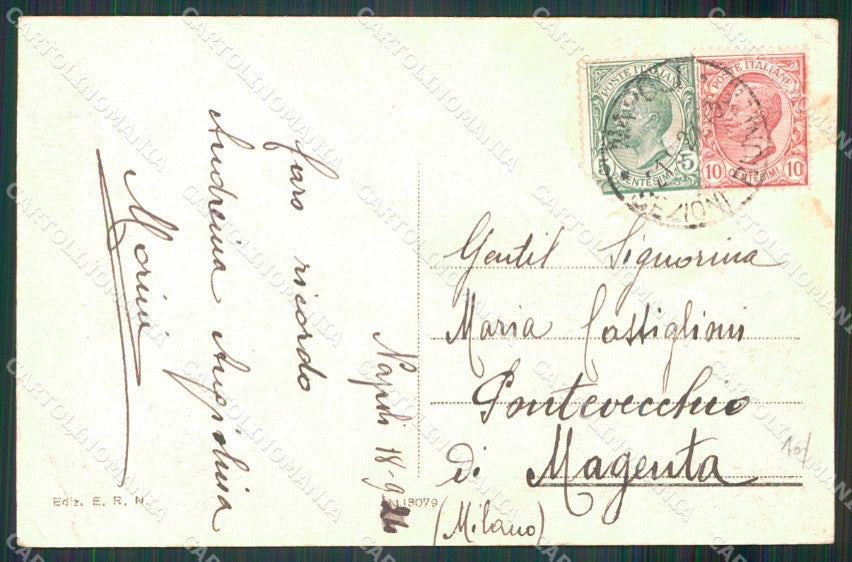 POSTE ITALIANE
5 5
CENTESIMI
POSTE ITALIANE
10 10
CENTESIMI
NAPOLI
Napoli 18-9-21
Caro ricordo
Andreina Angiolina
Morini
Gentil Signorina
Maria Castiglioni
Pontevecchio
di Magenta
(Milano)
Ediz. E. R. N.
13079
CARTOLINOMANIA